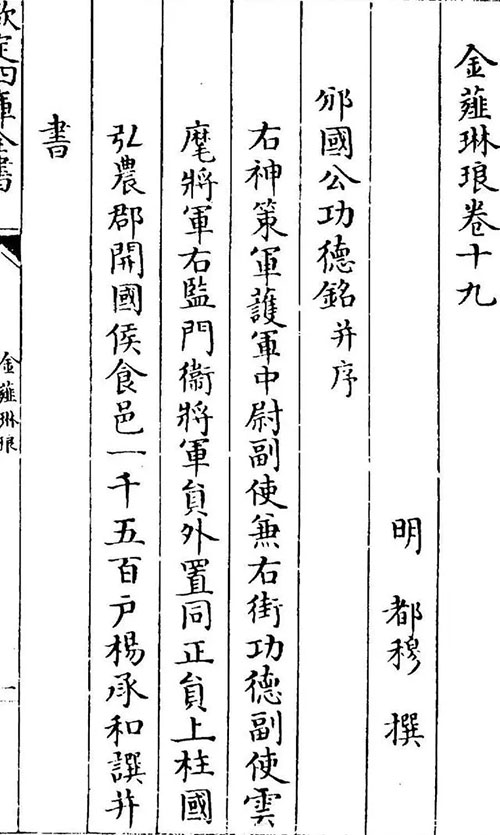 金薤琳琅卷十九
明 都穆 撰
邠國公功德銘并序
右神策軍護軍中尉副使兼右街功德副使雲
麾將軍右監門衞將軍貟外置同正貟上柱國
弘農郡開國侯食邑一千五百戸楊承和譔并
書
欽定四庫全書
金薤琳琅
一